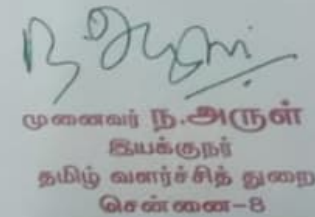 ந.அருள்
முனைவர் ந.அருள்
இயக்குநர்
தமிழ் வளர்ச்சித் துறை
சென்னை-8